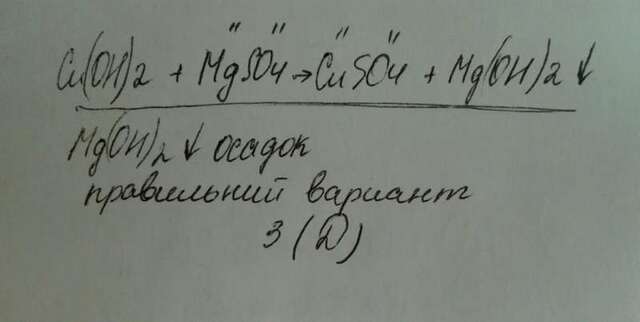 Cu(OH)2 + MgSO4 → CuSO4 + Mg(OH)2 ↓
Mg(OH)2 ↓ осадок
правильний вариант
3 (D)